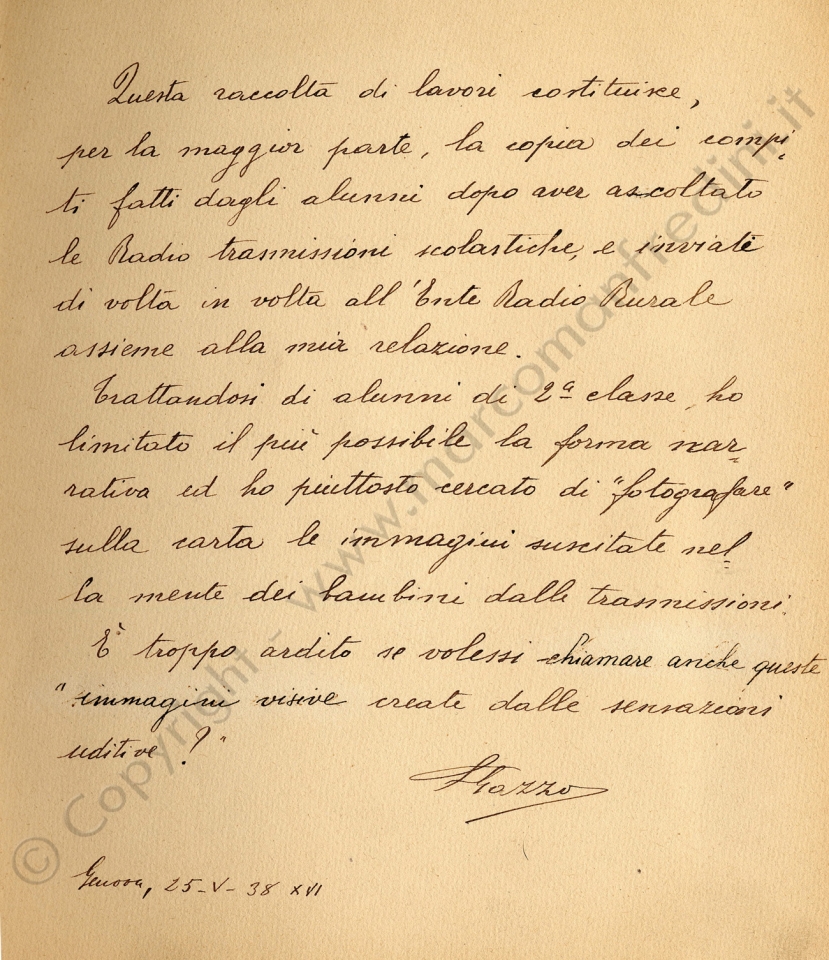 Questa raccolta di lavori costituisce,
per la maggior parte, la copia dei compi-
ti fatti dagli alunni dopo aver ascoltato
le Radio trasmissioni scolastiche, e inviate
di volta in volta all'Ente Radio Rurale
assieme alla mia relazione.
Trattandosi di alunni di 2ª classe, ho
limitato il più possibile la forma nar-
rativa ed ho piuttosto cercato di "fotografare"
sulla carta le immagini suscitate nel-
la mente dei bambini dalle trasmissioni.
È troppo ardito se volessi chiamare anche queste
"immagini visive create dalle sensazioni
uditive?"
Gazzo
Genova, 25-V-38 XVI
© Copyright - www.marcomanfredini.it